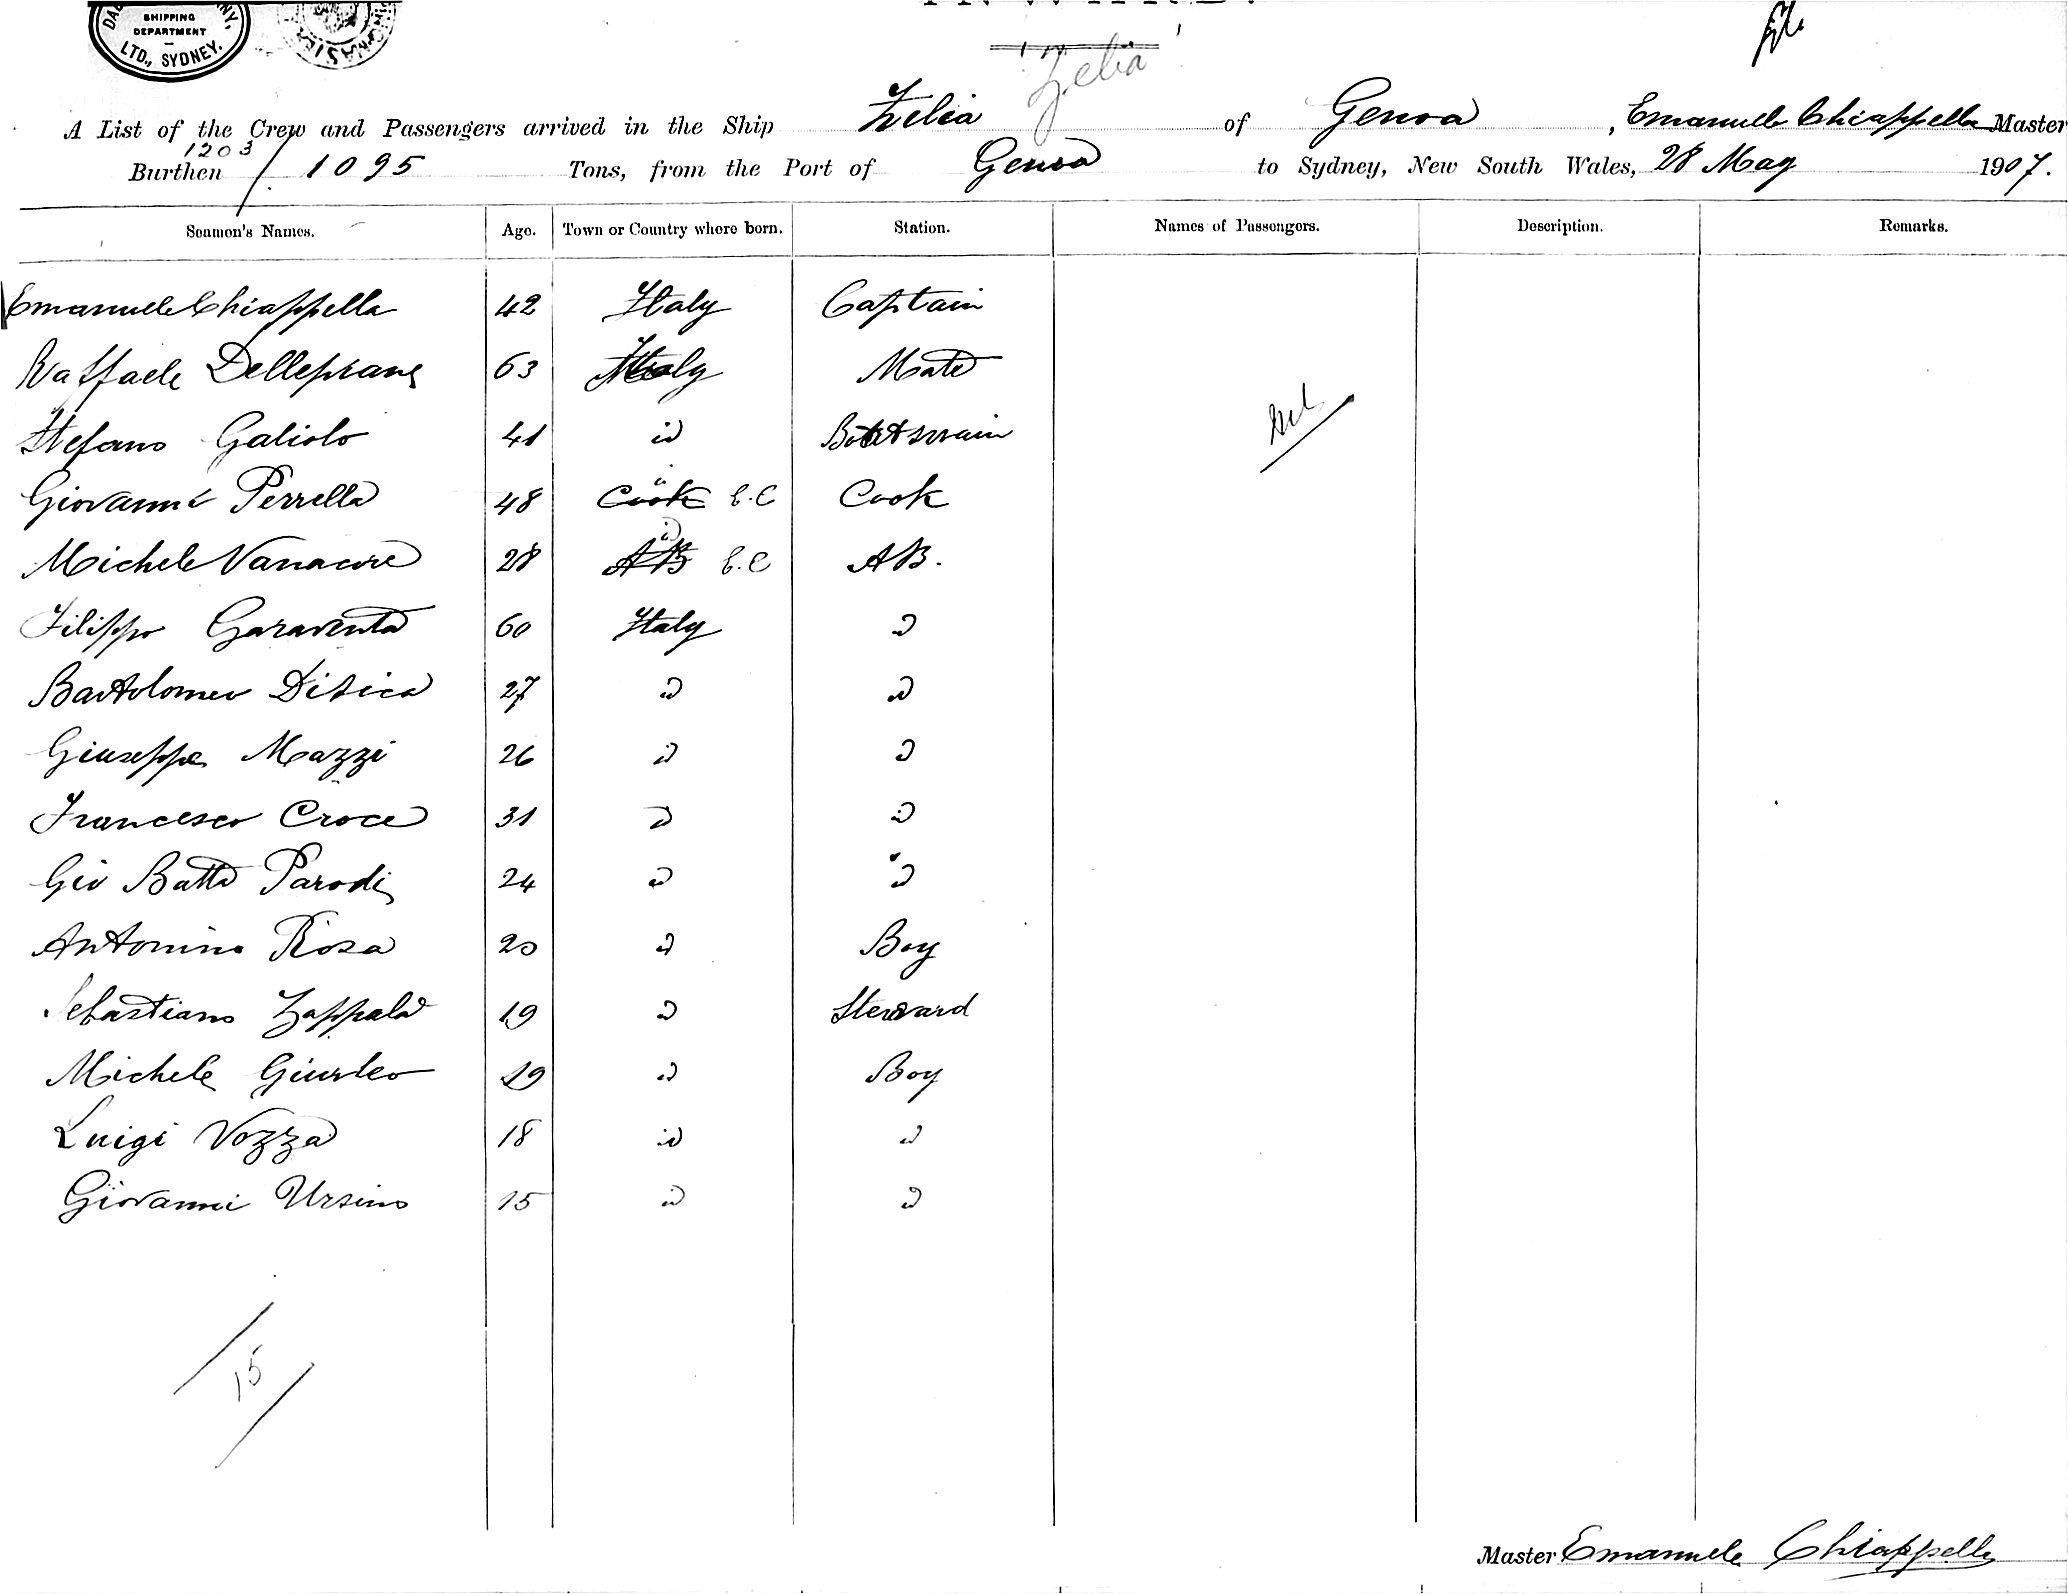 SHIPPING
DEPARTMENT
LTD., SYDNEY.
INWARD.
Zelia
A List of the Crew and Passengers arrived in the Ship Zelia of Genoa, Emanuele Chiappella Master
1203
Burthen 1095 Tons, from the Port of Genoa to Sydney, New South Wales, 28 May 1907.
Seamen's Names. Age. Town or Country where born. Station. Names of Passengers. Description. Remarks.
Emanuele Chiappella 42 Italy Captain
Raffaele Dellepiane 63 Italy Mate
Stefano Galiolo 41 id Boatswain
Nil
Giovanni Perrella 48 Cook id E.C Cook
Michele Vanacore 28 AB id E.C AB.
Filippo Garaventa 60 Italy id
Bartolomeo Disica 27 id id
Giuseppe Mazzi 26 id id
Francesco Croce 31 id id
Gio Batta Parodi 24 id id
Antonino Rosa 20 id Boy
Sebastiano Zappala 19 id Steward
Michele Giurleo 19 id Boy
Luigi Vozza 18 id id
Giovanni Ursino 15 id id
15
Master Emanuele Chiappella